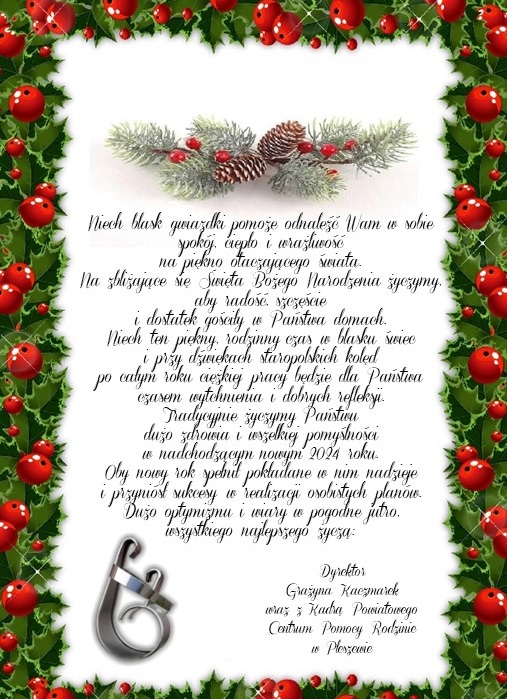 Niech blask gwiazdki pomoże odnaleźć Wam w sobie
spokój, ciepło i wrażliwość
na piękno otaczającego świata.
Na zbliżające się Święta Bożego Narodzenia życzymy,
aby radość, szczęście
i dostatek gościły w Państwa domach.
Niech ten piękny, rodzinny czas w blasku świec
i przy dźwiękach staropolskich kolęd
po całym roku ciężkiej pracy będzie dla Państwa
czasem wytchnienia i dobrych refleksji.
Tradycyjnie życzymy Państwu
dużo zdrowia i wszelkiej pomyślności
w nadchodzącym nowym 2024 roku.
Oby nowy rok spełnił pokładane w nim nadzieje
i przyniósł sukcesy w realizacji osobistych planów.
Dużo optymizmu i wiary w pogodne jutro,
wszystkiego najlepszego życzą:
Dyrektor
Grażyna Kaczmarek
wraz z Kadrą Powiatowego
Centrum Pomocy Rodzinie
w Pleszewie